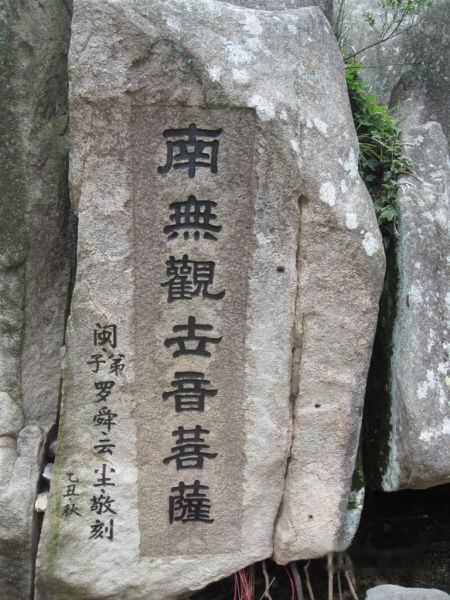 南無觀世音菩薩
闽弟子罗舜云尘敬刻
乙丑秋